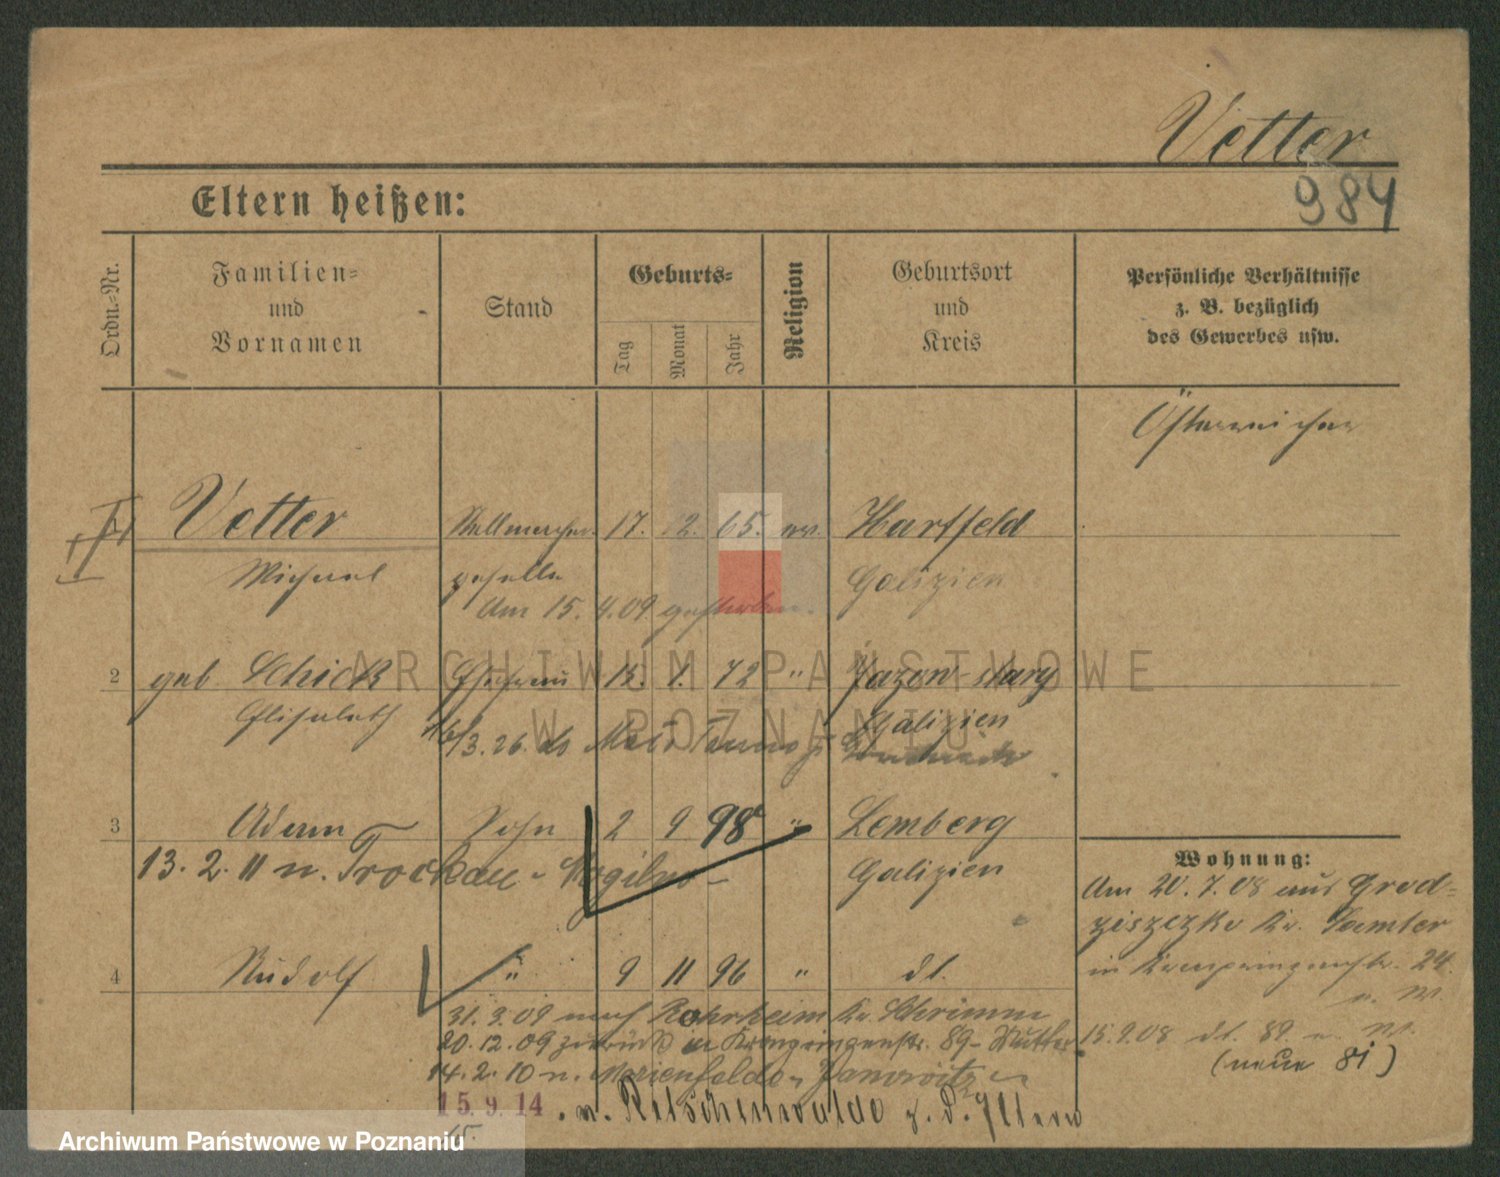 Vetter
984
Eltern heißen:
Ordn.-Nr.
Familien-
und
Vornamen
Stand
Geburts-
Tag
Monat
Jahr
Religion
Geburtsort
und
Kreis
Persönliche Verhältnisse
z. B. bezüglich
des Gewerbes usw.
Österreicher
Vetter Stellmacher 17. 12. 65. ev. Hartfeld
Michael geselle Galizien
Am 15. 4. 09 gestorben.
2 geb Schick Ehefrau 15. 1. 72 " stary
Elisabeth Galizien
3. 26.
3 Adam Sohn 2 9 98 " Lemberg
13. 2. 11 n. Trockau - Mogilno - Galizien
4 Rudolf " 9 11 96 " dt.
31. 3. 09 nach Rohrheim Kr. Schrimm
20. 12. 09 zurück Kronprinzenstr. 89 - Mutter
14. 2. 10 n. Marienfelde - Janowitz -
15. 9. 14 . n. Retschinwalde z. d. Eltern
15.
Wohnung:
Am 20. 7. 08 aus Grod-
ziszczko Kr. Samter
in Kronprinzenstr. 24
15. 9. 08 dt. 89
(neue 81)
ARCHIWUM PAŃSTWOWE
W POZNANIU
Archiwum Państwowe w Poznaniu